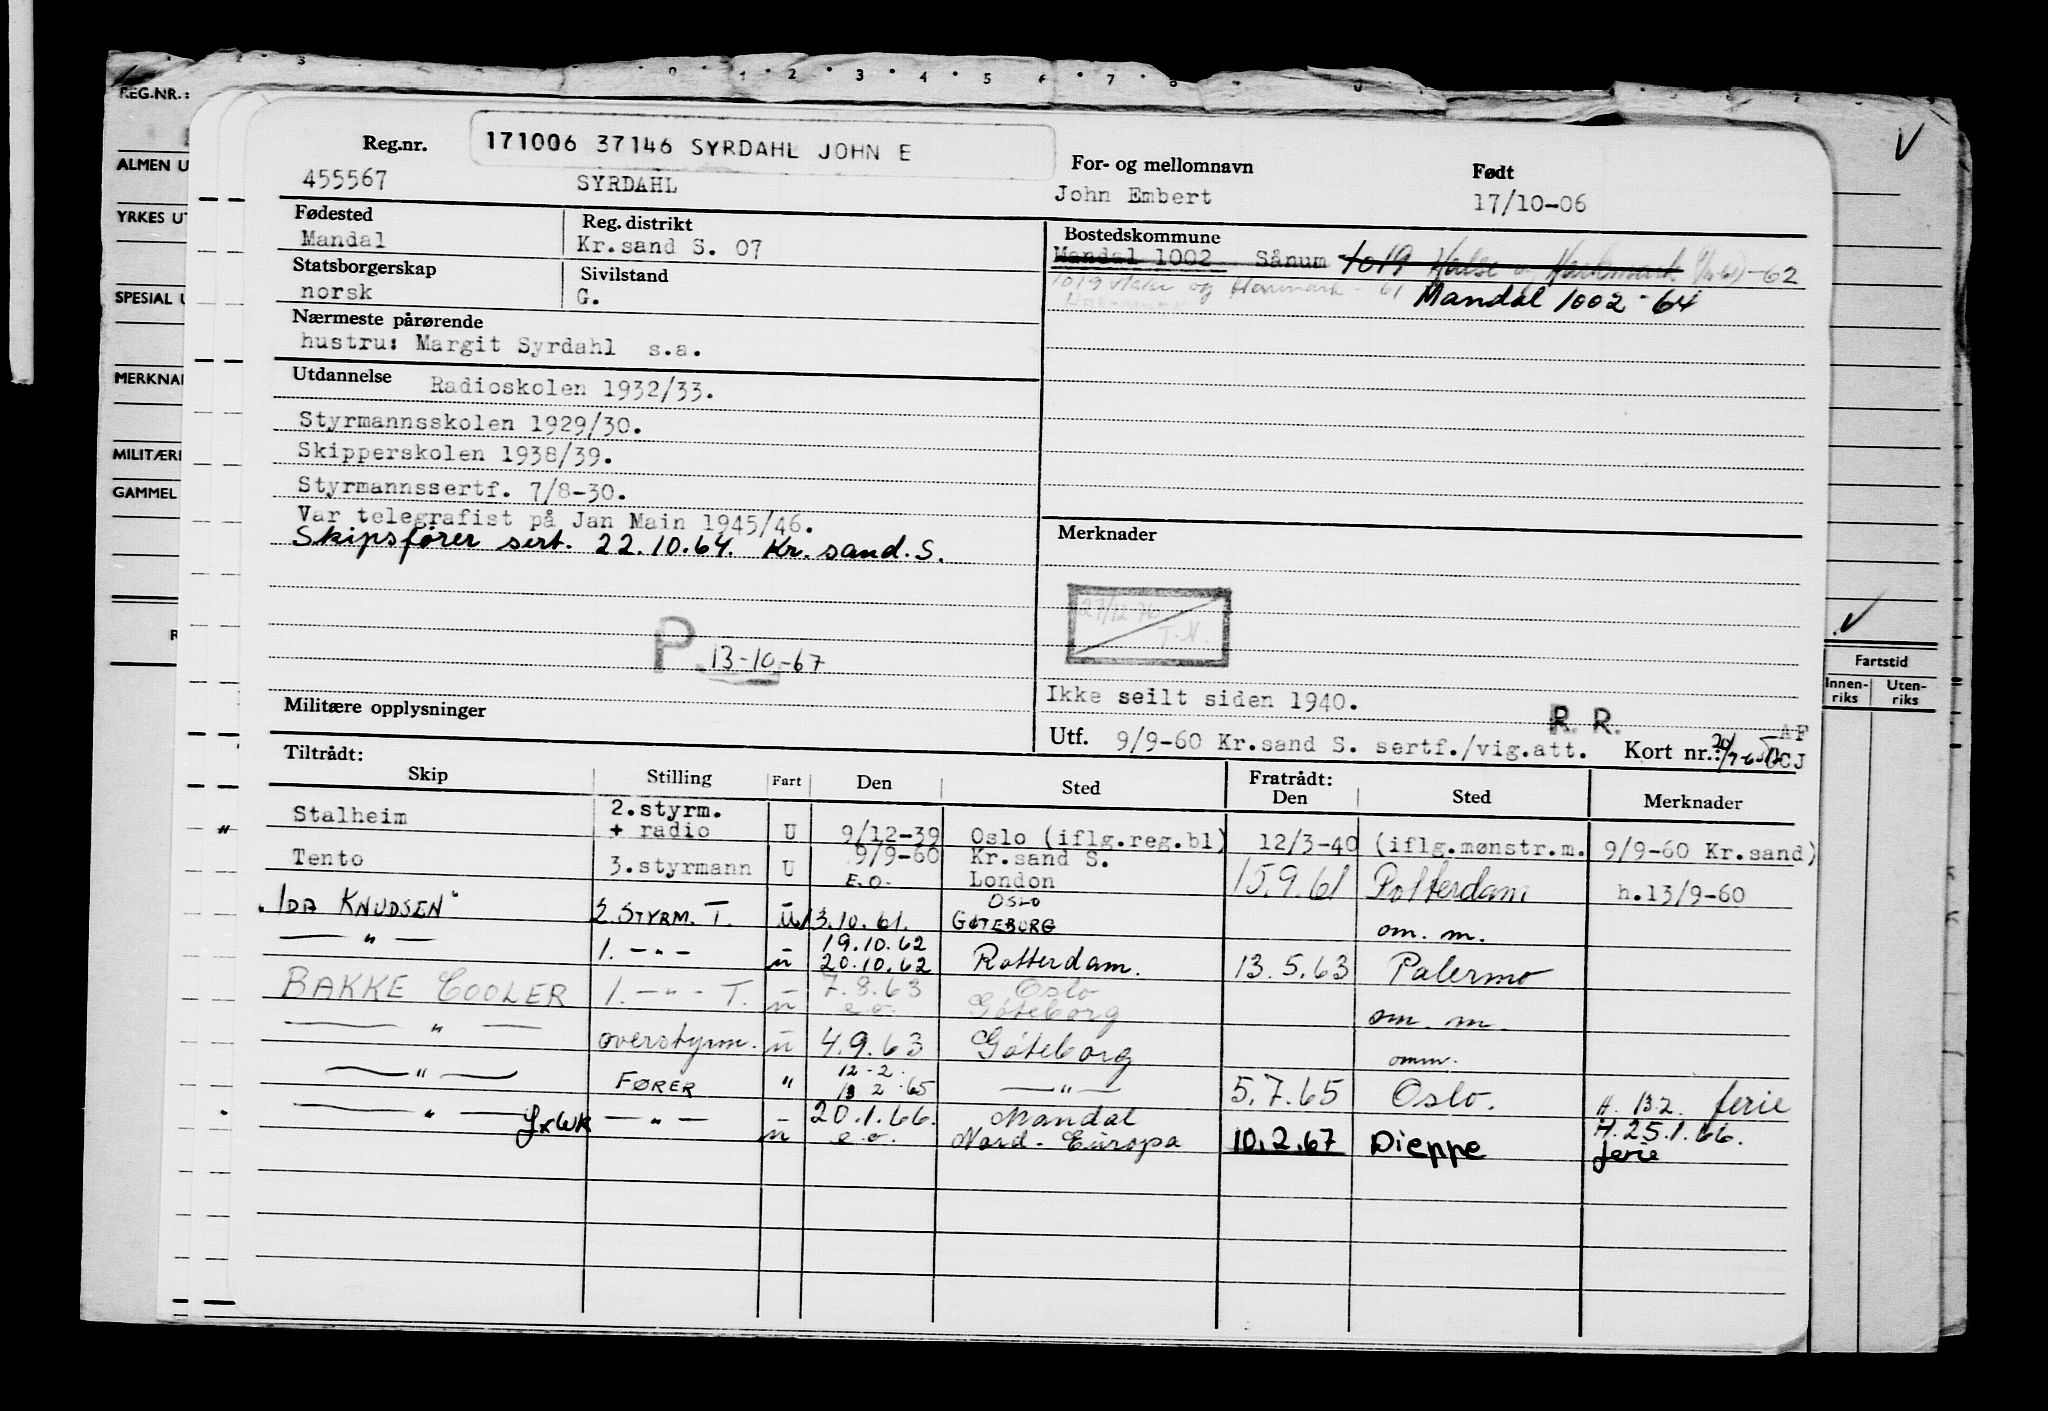 REG.NR.:
ALMEN U
YRKES UT
SPESIAL U
MERKNAD
MILITÆRE
GAMMEL
Reg.nr. 171006 37146 SYRDAHL JOHN E For- og mellomnavn Født
455567 SYRDAHL John Embert 17/10-06
Fødested Reg. distrikt Bostedskommune
Mandal Kr.sand S. 07 Mandal 1002 Sånum 1019 Halse og Harkmark -62
Statsborgerskap Sivilstand 1019 Halse og Harkmark - 61 Mandal 1002 - 64
norsk G.
Nærmeste pårørende
hustru: Margit Syrdahl s.a.
Utdannelse Radioskolen 1932/33.
Styrmannsskolen 1929/30.
Skipperskolen 1938/39.
Styrmannssertf. 7/8-30.
Var telegrafist på Jan Main 1945/46.
Skipsfører sert. 22.10.64. Kr. sand. S.
Merknader
27/12 76
T.N.
P. 13-10-67
Ikke seilt siden 1940.
Militære opplysninger
R. R. AF
Utf. 9/9-60 Kr.sand S. sertf./vig.att. Kort nr.: CJ
Fartstid
Innen-riks Uten-riks
Tiltrådt: Fratrådt:
Skip Stilling Fart Den Sted Den Sted Merknader
Stalheim 2.styrm. + radio U 9/12-39 Oslo (iflg.reg.bl) 12/3-40 (iflg.mønstr.m. 9/9-60 Kr.sand)
Tento 3.styrmann U 9/9-60 E.O. Kr.sand S. London 15.9.61 Rotterdam h.13/9-60
"IDA KNUDSEN" 2. STYRM. T. - U 13.10.61. OSLO GØTEBORG om. m.
— " — 1. - " - - u 19.10.62 20.10.62 Rotterdam. 13.5.63 Palermo
BAKKE COOLER 1. - " - T. - u 7.8.63 e.o. Oslo Göteborg om. m.
— " — overstyrm. - u 4.9.63 Göteborg omm.
— " — FØRER " 12-2. 13 2.65 — " — 5.7.65 Oslo. H. 13.2. ferie
— " — LxWK — " — - u 20.1.66. e.o. Mandal Nord-Europa 10.2.67 Dieppe H.25.1.66. ferie